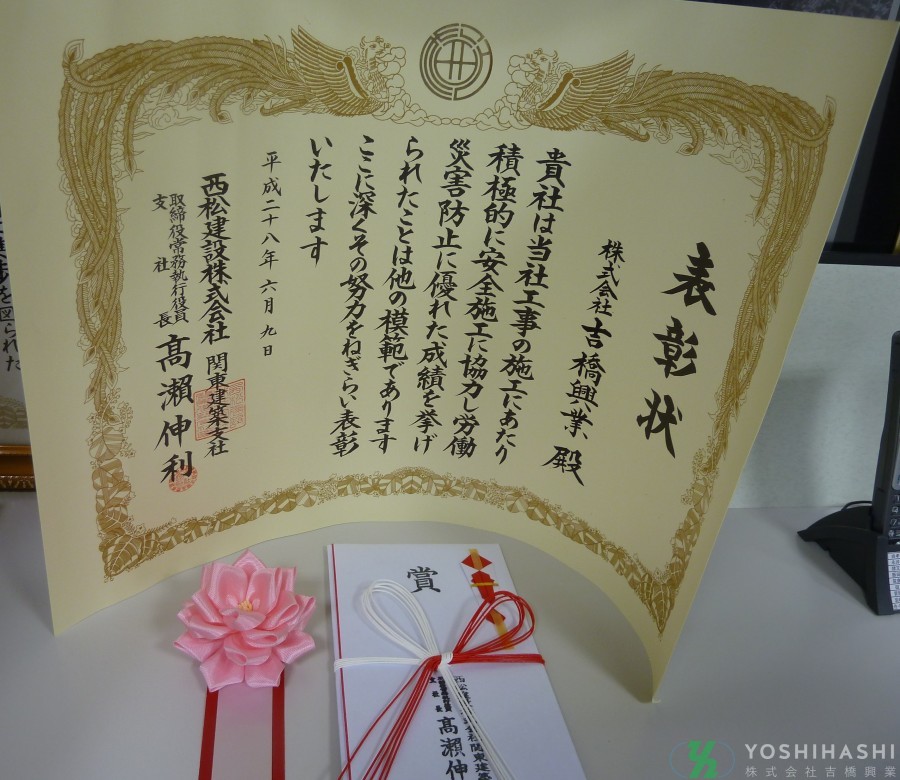 表彰状
株式会社 吉橋興業 殿
貴社は当社工事の施工にあたり
積極的に安全施工に協力し労働
災害防止に優れた成績を挙げ
られたことは他の模範であります
ここに深くその努力をねぎらい表彰
いたします
平成二十八年六月九日
西松建設株式会社 関東建築支社
取締役常務執行役員
支社長
髙瀨伸利
賞
支社長
髙瀨伸
を図られた
YOSHIHASHI
株式会社吉橋興業